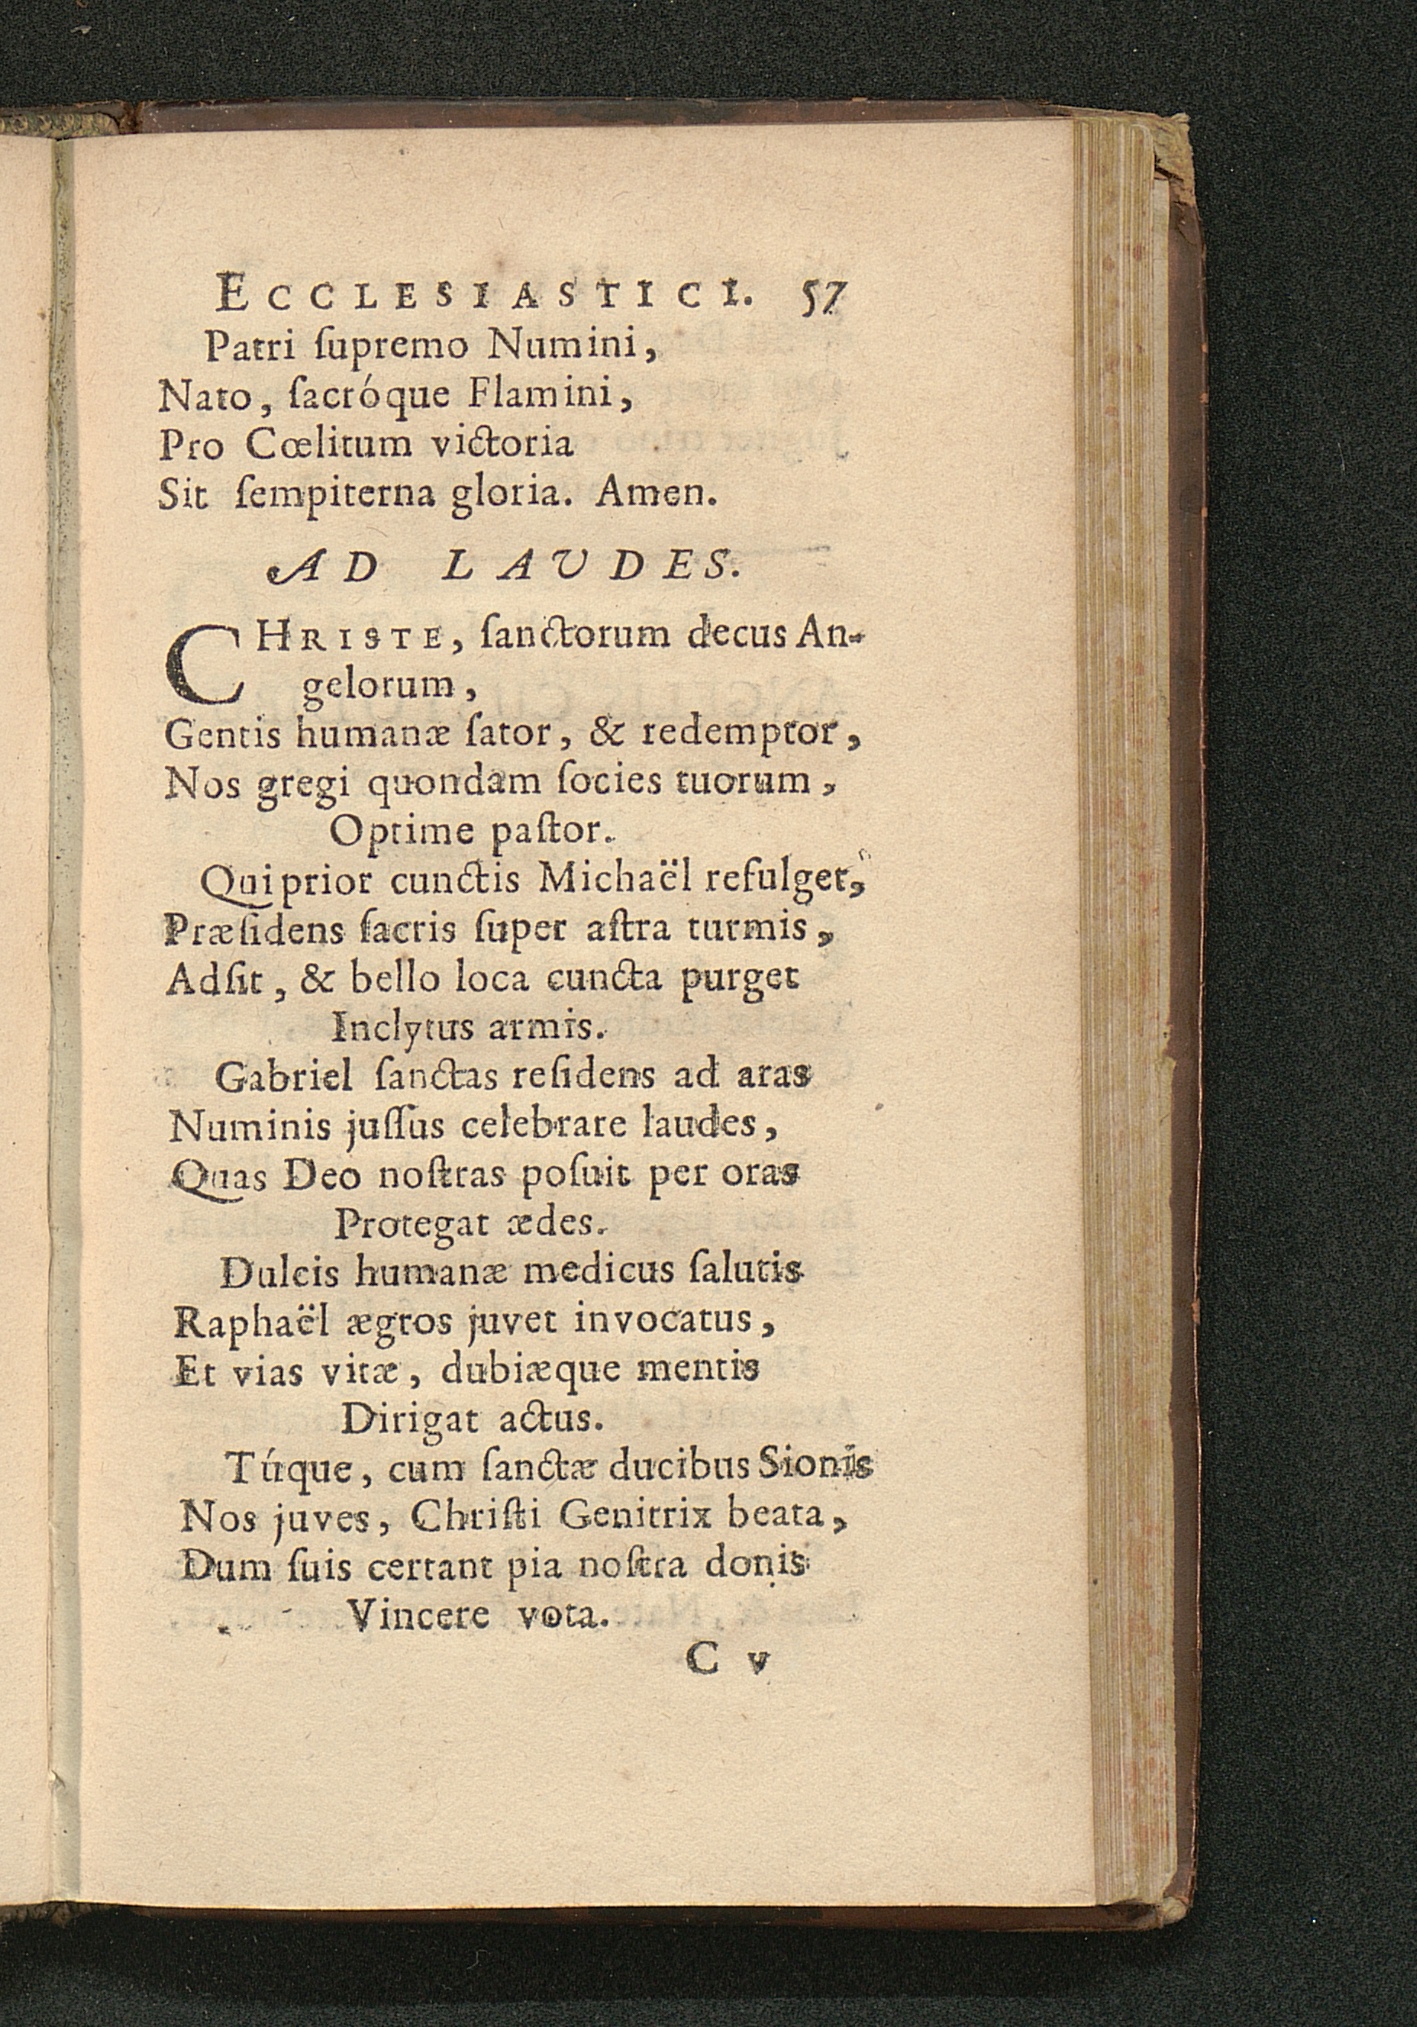 ECCLESIASTICI. 57
Patri ſupremo Numini,
Nato, ſacróque Flamini,
Pro Cœlitum victoria
Sit ſempiterna gloria. Amen.
AD LAUDES.
CHRISTE, ſanctorum decus An-
gelorum,
Gentis humanæ ſator, & redemptor,
Nos gregi quondam ſocies tuorum,
Optime paſtor.
Qui prior cunctis Michaël refulget,
Præſidens ſacris ſuper aſtra turmis,
Adſit, & bello loca cuncta purget
Inclytus armis.
Gabriel ſanctas reſidens ad aras
Numinis juſſus celebrare laudes,
Quas Deo noſtras poſuit per oras
Protegat ædes.
Dulcis humanæ medicus ſalutis
Raphaël ægros juvet invocatus,
Et vias vitæ, dubiæque mentis
Dirigat actus.
Túque, cum ſanctæ ducibus Sionis
Nos juves, Chriſti Genitrix beata,
Dum ſuis certant pia noſtra donis
Vincere vota.
C v